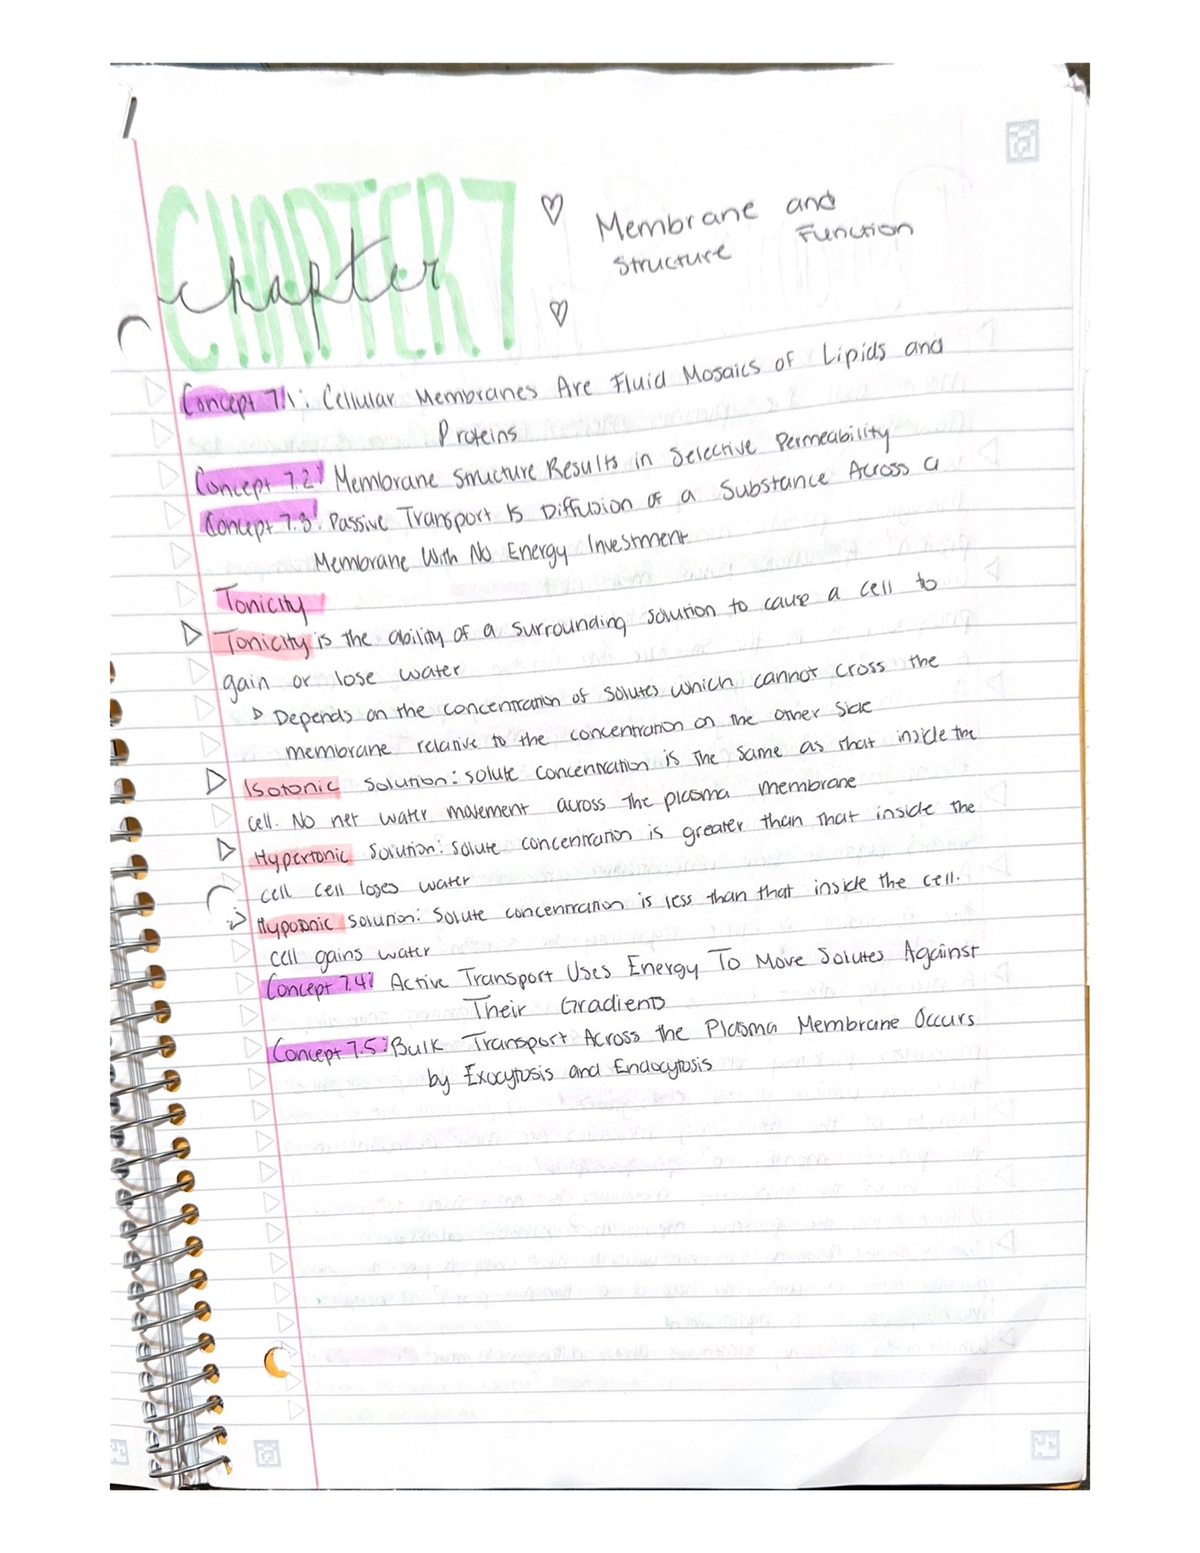 CHAPTER 7
chapter
Membrane and
Structure Function
Concept 7.1: Cellular Membranes Are Fluid Mosaics of Lipids and
Proteins
Concept 7.2: Membrane Structure Results in Selective Permeability
Concept 7.3: Passive Transport Is Diffusion of a Substance Across a
Membrane With No Energy Investment
Tonicity
Tonicity is the ability of a surrounding solution to cause a cell to
gain or lose water
Depends on the concentration of solutes which cannot cross the
membrane relative to the concentration on the other side
Isotonic solution: solute concentration is the same as that inside the
cell. No net water movement across the plasma membrane
Hypertonic solution: solute concentration is greater than that inside the
cell cell loses water
Hypotonic solution: solute concentration is less than that inside the cell.
cell gains water
Concept 7.4: Active Transport Uses Energy To Move Solutes Against
Their Gradients
Concept 7.5: Bulk Transport Across the Plasma Membrane Occurs
by Exocytosis and Endocytosis